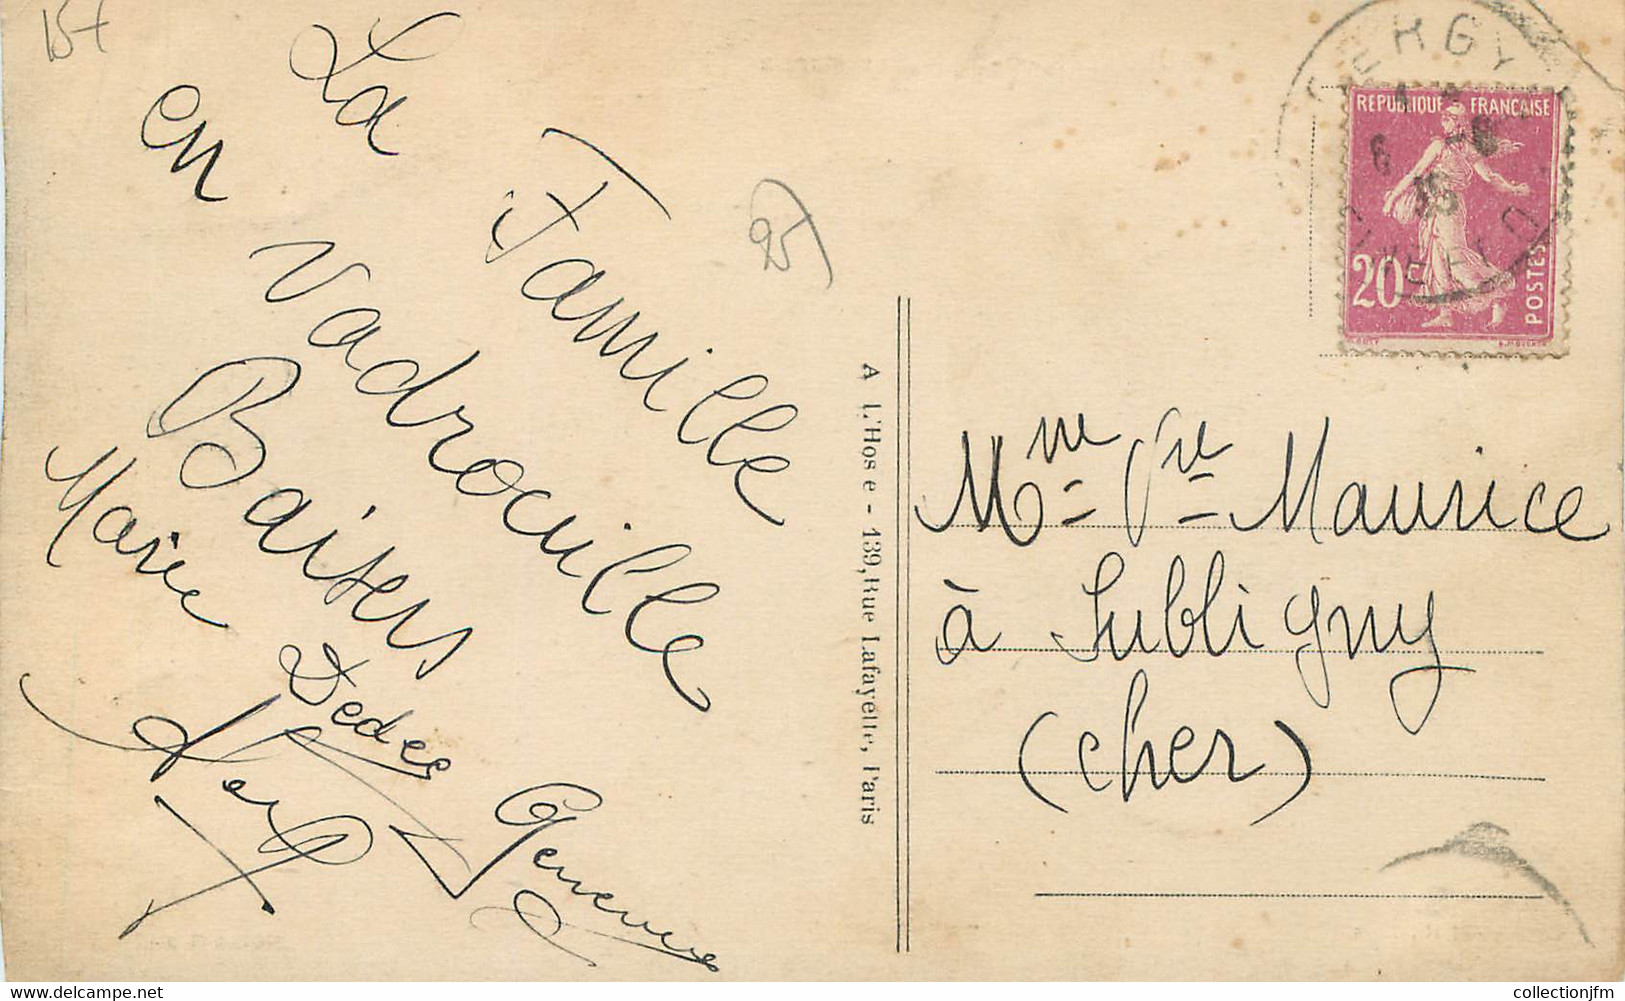 15+
La Famille
en vadrouille
Baisers
Marie
Dedee
Genevieve
25
A L'Hoste - 139, Rue Lafayette, Paris
CERGY
RÉPUBLIQUE FRANÇAISE
6 -8
35
20c
POSTES
Mme Vve Maurice
à Subligny
(Cher)
collectionjfm